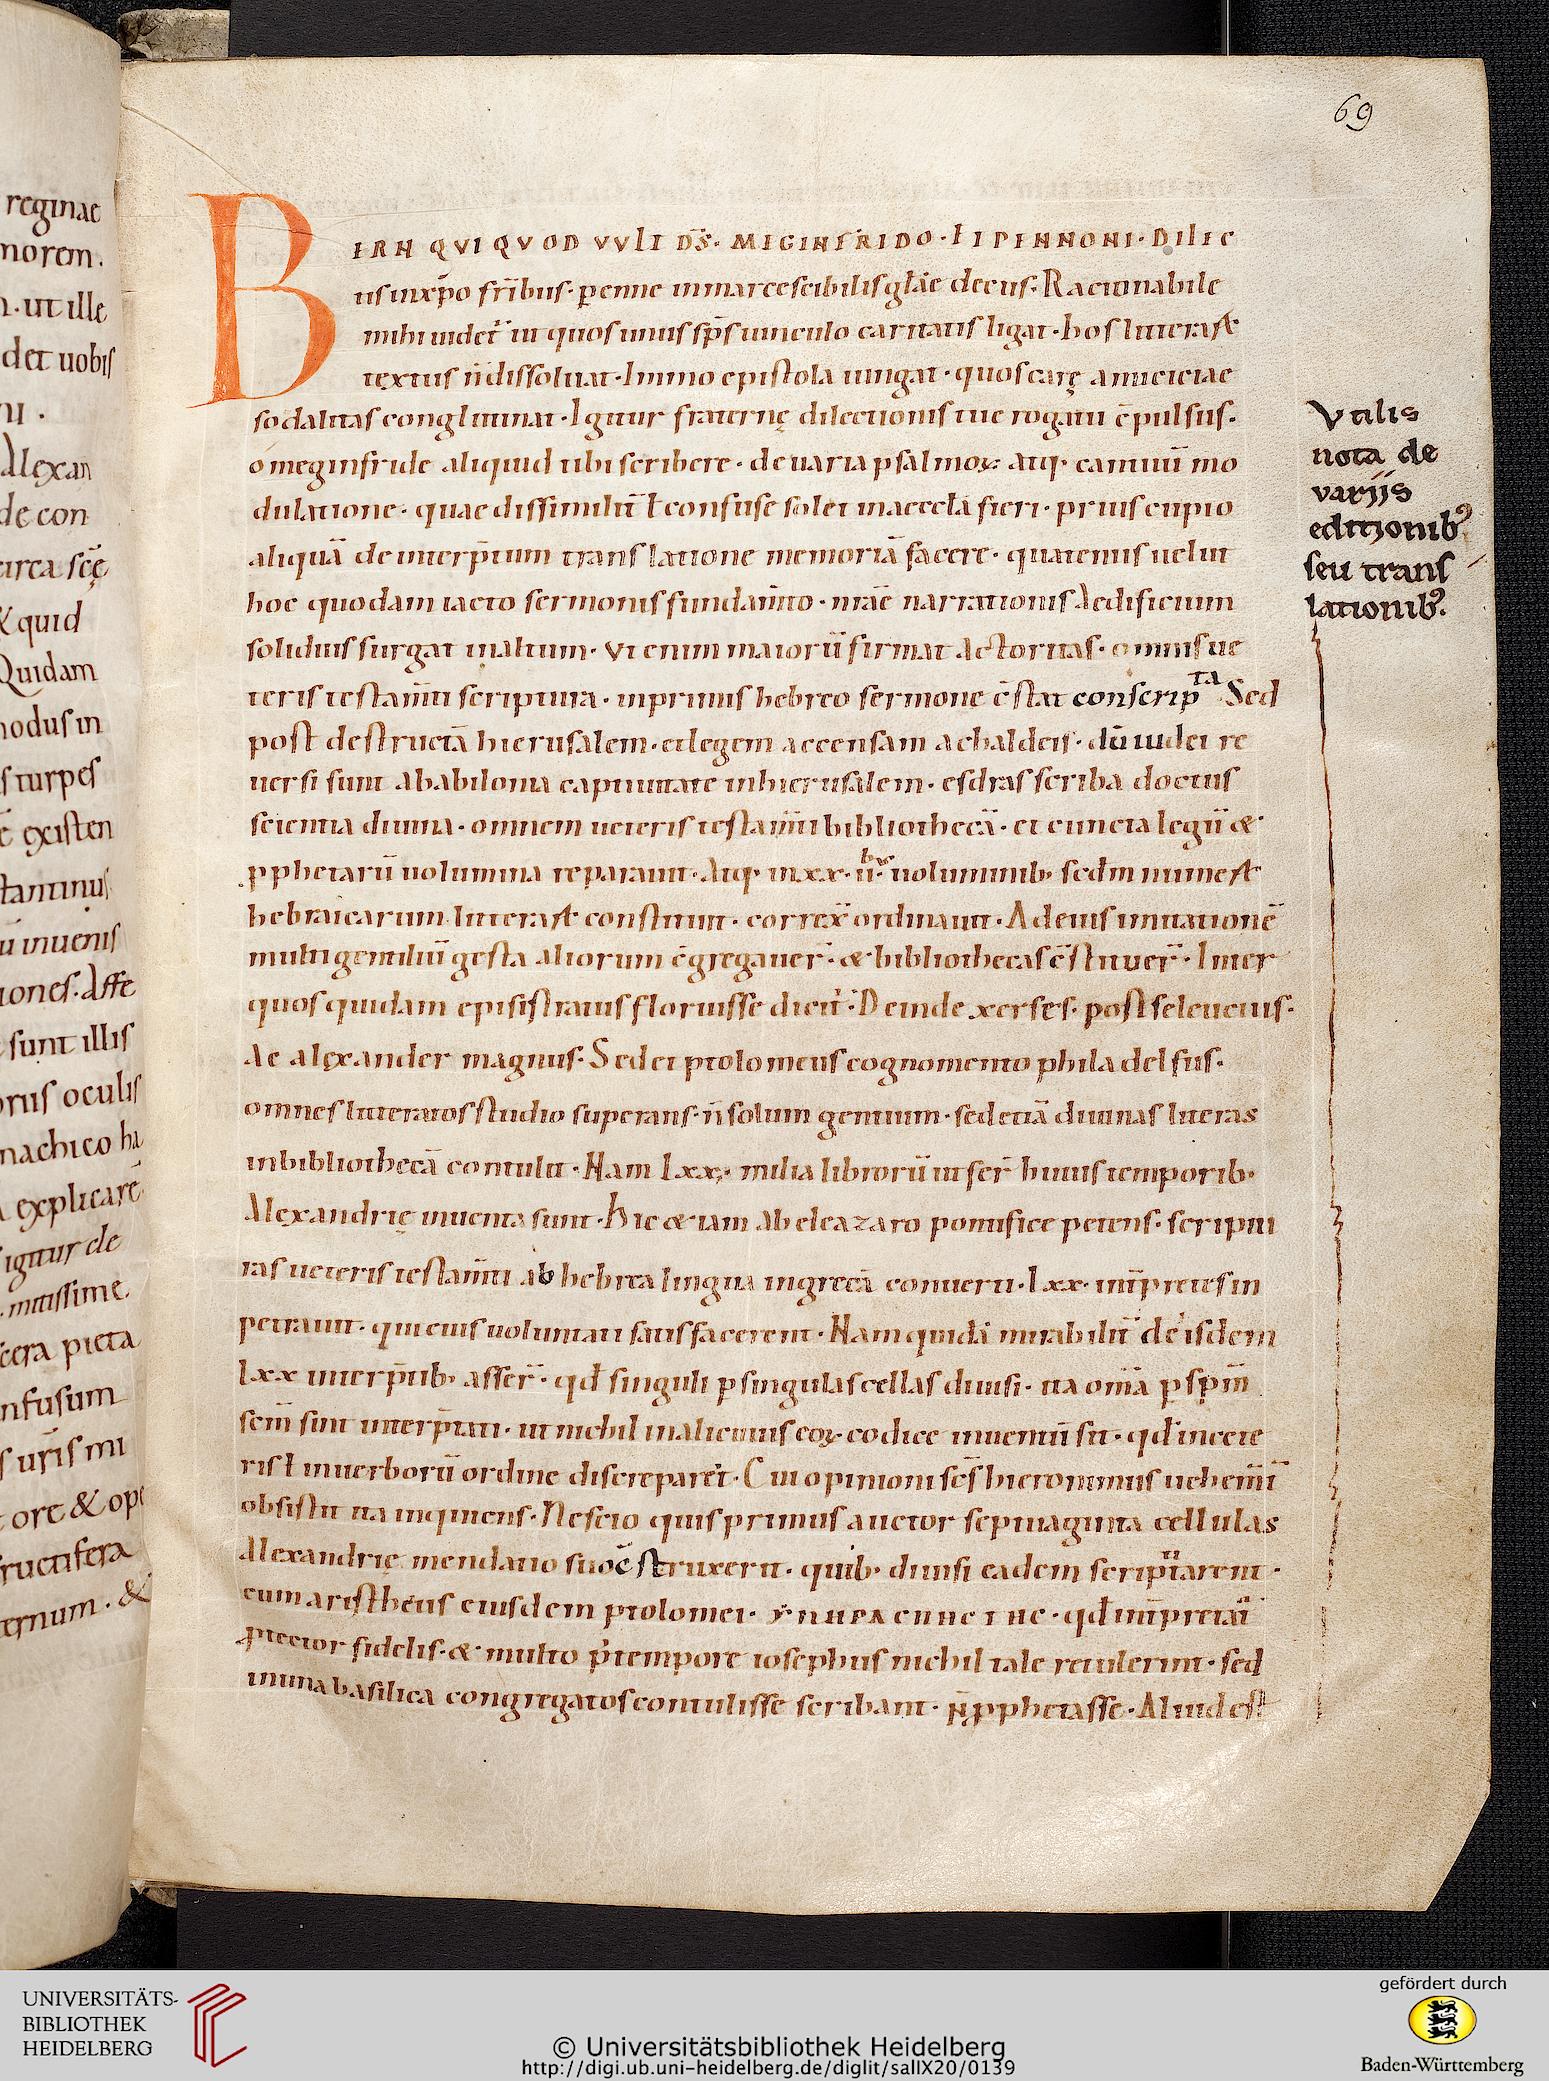 69
reginae
morem.
n. ut ille
det uobis
ni .
Alexan
de con
circa scē
& quid
Quidam
nodus in
s turpes
ē existen
stantinus
ū inuenis
iones. Asse
sunt illis
orus oculis
machico ha
explicarē
igitur de
mitissime
cera pieta
nfusum
s uris mi
ore & op
fructifera
ternum. &
BERN QVIQVOD VVLT DS̄. MEGINFRIDO. ET PENNONI. DILEC
tis in xp̄o frībus. penne inmarcescibilis gl̄ae decus. Racionabile
mihi uidet̄ ut quos unius sp̄s uinculo caritatis ligat. hos litterarū
textus n̄ dissoluat. Immo epistola iungat. quos carę amiciciae
sodalitas conglutinat. Igitur fraternę dilectionis tue rogatu c̄pulsus.
o meginfride aliquid tibi scribere. de uaria psalmoꝝ atq. cantuū mo
dulatione. quae dissimilit̄ ł confuse solet in aeccłā fieri. prius cupio
aliquā de interp̄tum translatione memoriā facere. quatenus uelut
hoc quodam iacto sermonis fundam̄to. nr̄ae narrationis aedificium
solidius surgat in altum. Vt enim maiorū firmat actoritas. omnis ue
teris testam̄ti scriptura. inprimis hebreo sermone c̄stat conscripta Sed
post destructā hierusalem. et legem accensam a chaldeis. dū iudei re
uersi sunt a babilonia captiuitate in hierusalem. esdras scriba doctus
scientia diuina. omnem ueteris testam̄ti bibliothecā. et cuncta legū &
pphetarū uolumina reparauit. Atq. in xx. ii. uoluminib; scd̄m numerū
hebraicarum litterarū constituit. correx̄ ordinauit. Ad eius imitationē
multi gentiliū gesta aliorum c̄gregauer̄. & bibliothecas c̄stituer̄. Inter
quos quidam episistratus floruisse dicit̄. Deinde xerses. post seleucius.
Ac alexander magnus. Sed et ptolomeus cognomento philadelfus.
omnes litteratos studio superans. n̄ solum gentium. sed etiā diuinas literas
in bibliothecā contulit. Nam lxx. milia librorū ut fer̄ huius temporib;
Alexandrię inuenta sunt. Hic & iam ab eleazaro pontifice petens. scriptu
ras ueteris testam̄ti ab hebrea lingua in grecā conuerti. lxx. int̄pretes in
petrauit. qui eius uoluntati satisfacerent. Nam quidā mirabilit̄ de isdem
lxx interp̄tib; asser̄. qd̄ singuli p singulas cellas diuisi. ita om̄ia p sp̄m
sc̄m sint interp̄tati. ut nichil in alicuius eoꝝ codice inuentū sit. qd̄ in cete
ris ł in uerborū ordine discreparet̄. Cui opinioni sc̄s hieronimus uehem̄t̄
obsistit ita inquiens. Nescio quis primus auctor septuaginta cellulas
Alexandrię mendatio suo c̄struxerit. quib; diuisi eadem scriptitarent.
cum aristheus eiusdem ptolomei. qd̄ int̄pretat̄
ptector fidelis. & multo p̄ tempore iosephus nichil tale retulerint. sed
in una basilica congregatos contulisse scribant. n̄ pphetasse. Aliud est
Vtilis
nota de
varijs
editionib9
seu trans
lationib9.
UNIVERSITÄTS-
BIBLIOTHEK
HEIDELBERG
© Universitätsbibliothek Heidelberg
http://digi.ub.uni-heidelberg.de/diglit/salIX20/0139
gefördert durch
Baden-Württemberg